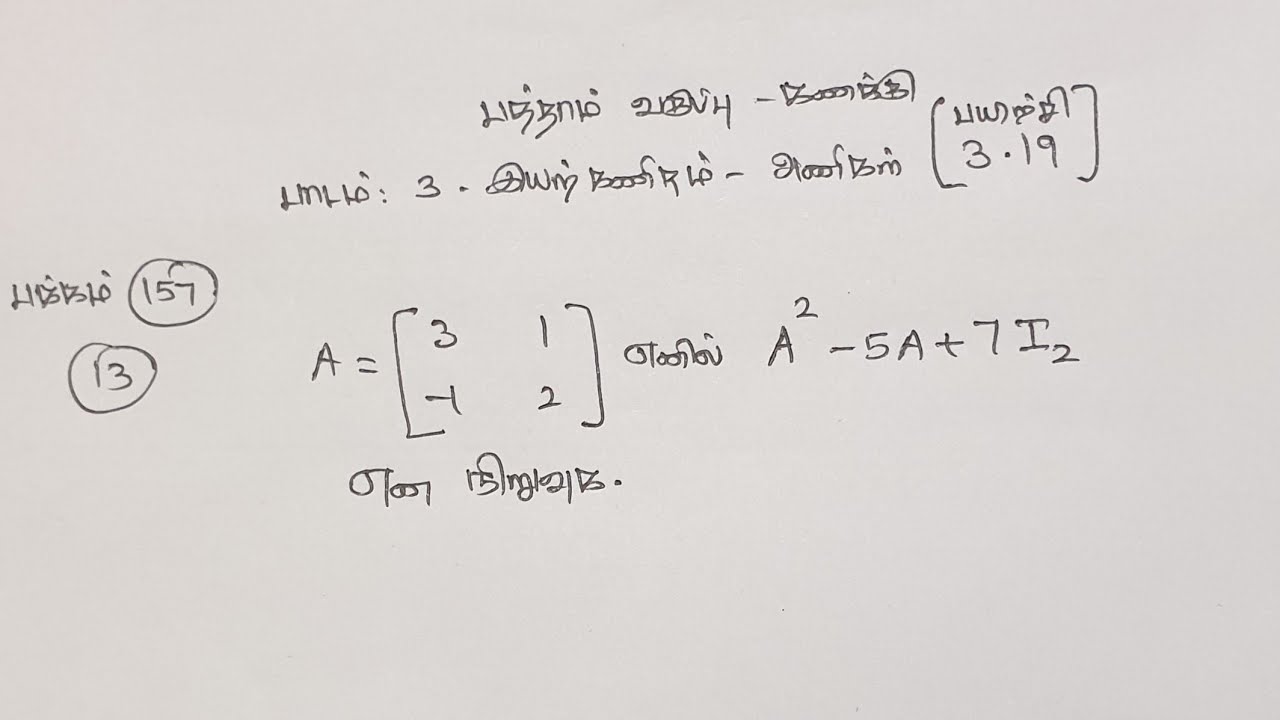 பத்தாம் வகுப்பு - கணக்கு
பாடம்: 3. இயற்கணிதம் - அணிகள் [பயிற்சி 3.19]
பக்கம் 157
13
A = [3 1
-1 2] எனில் A² - 5A + 7I₂
என நிறுவுக.